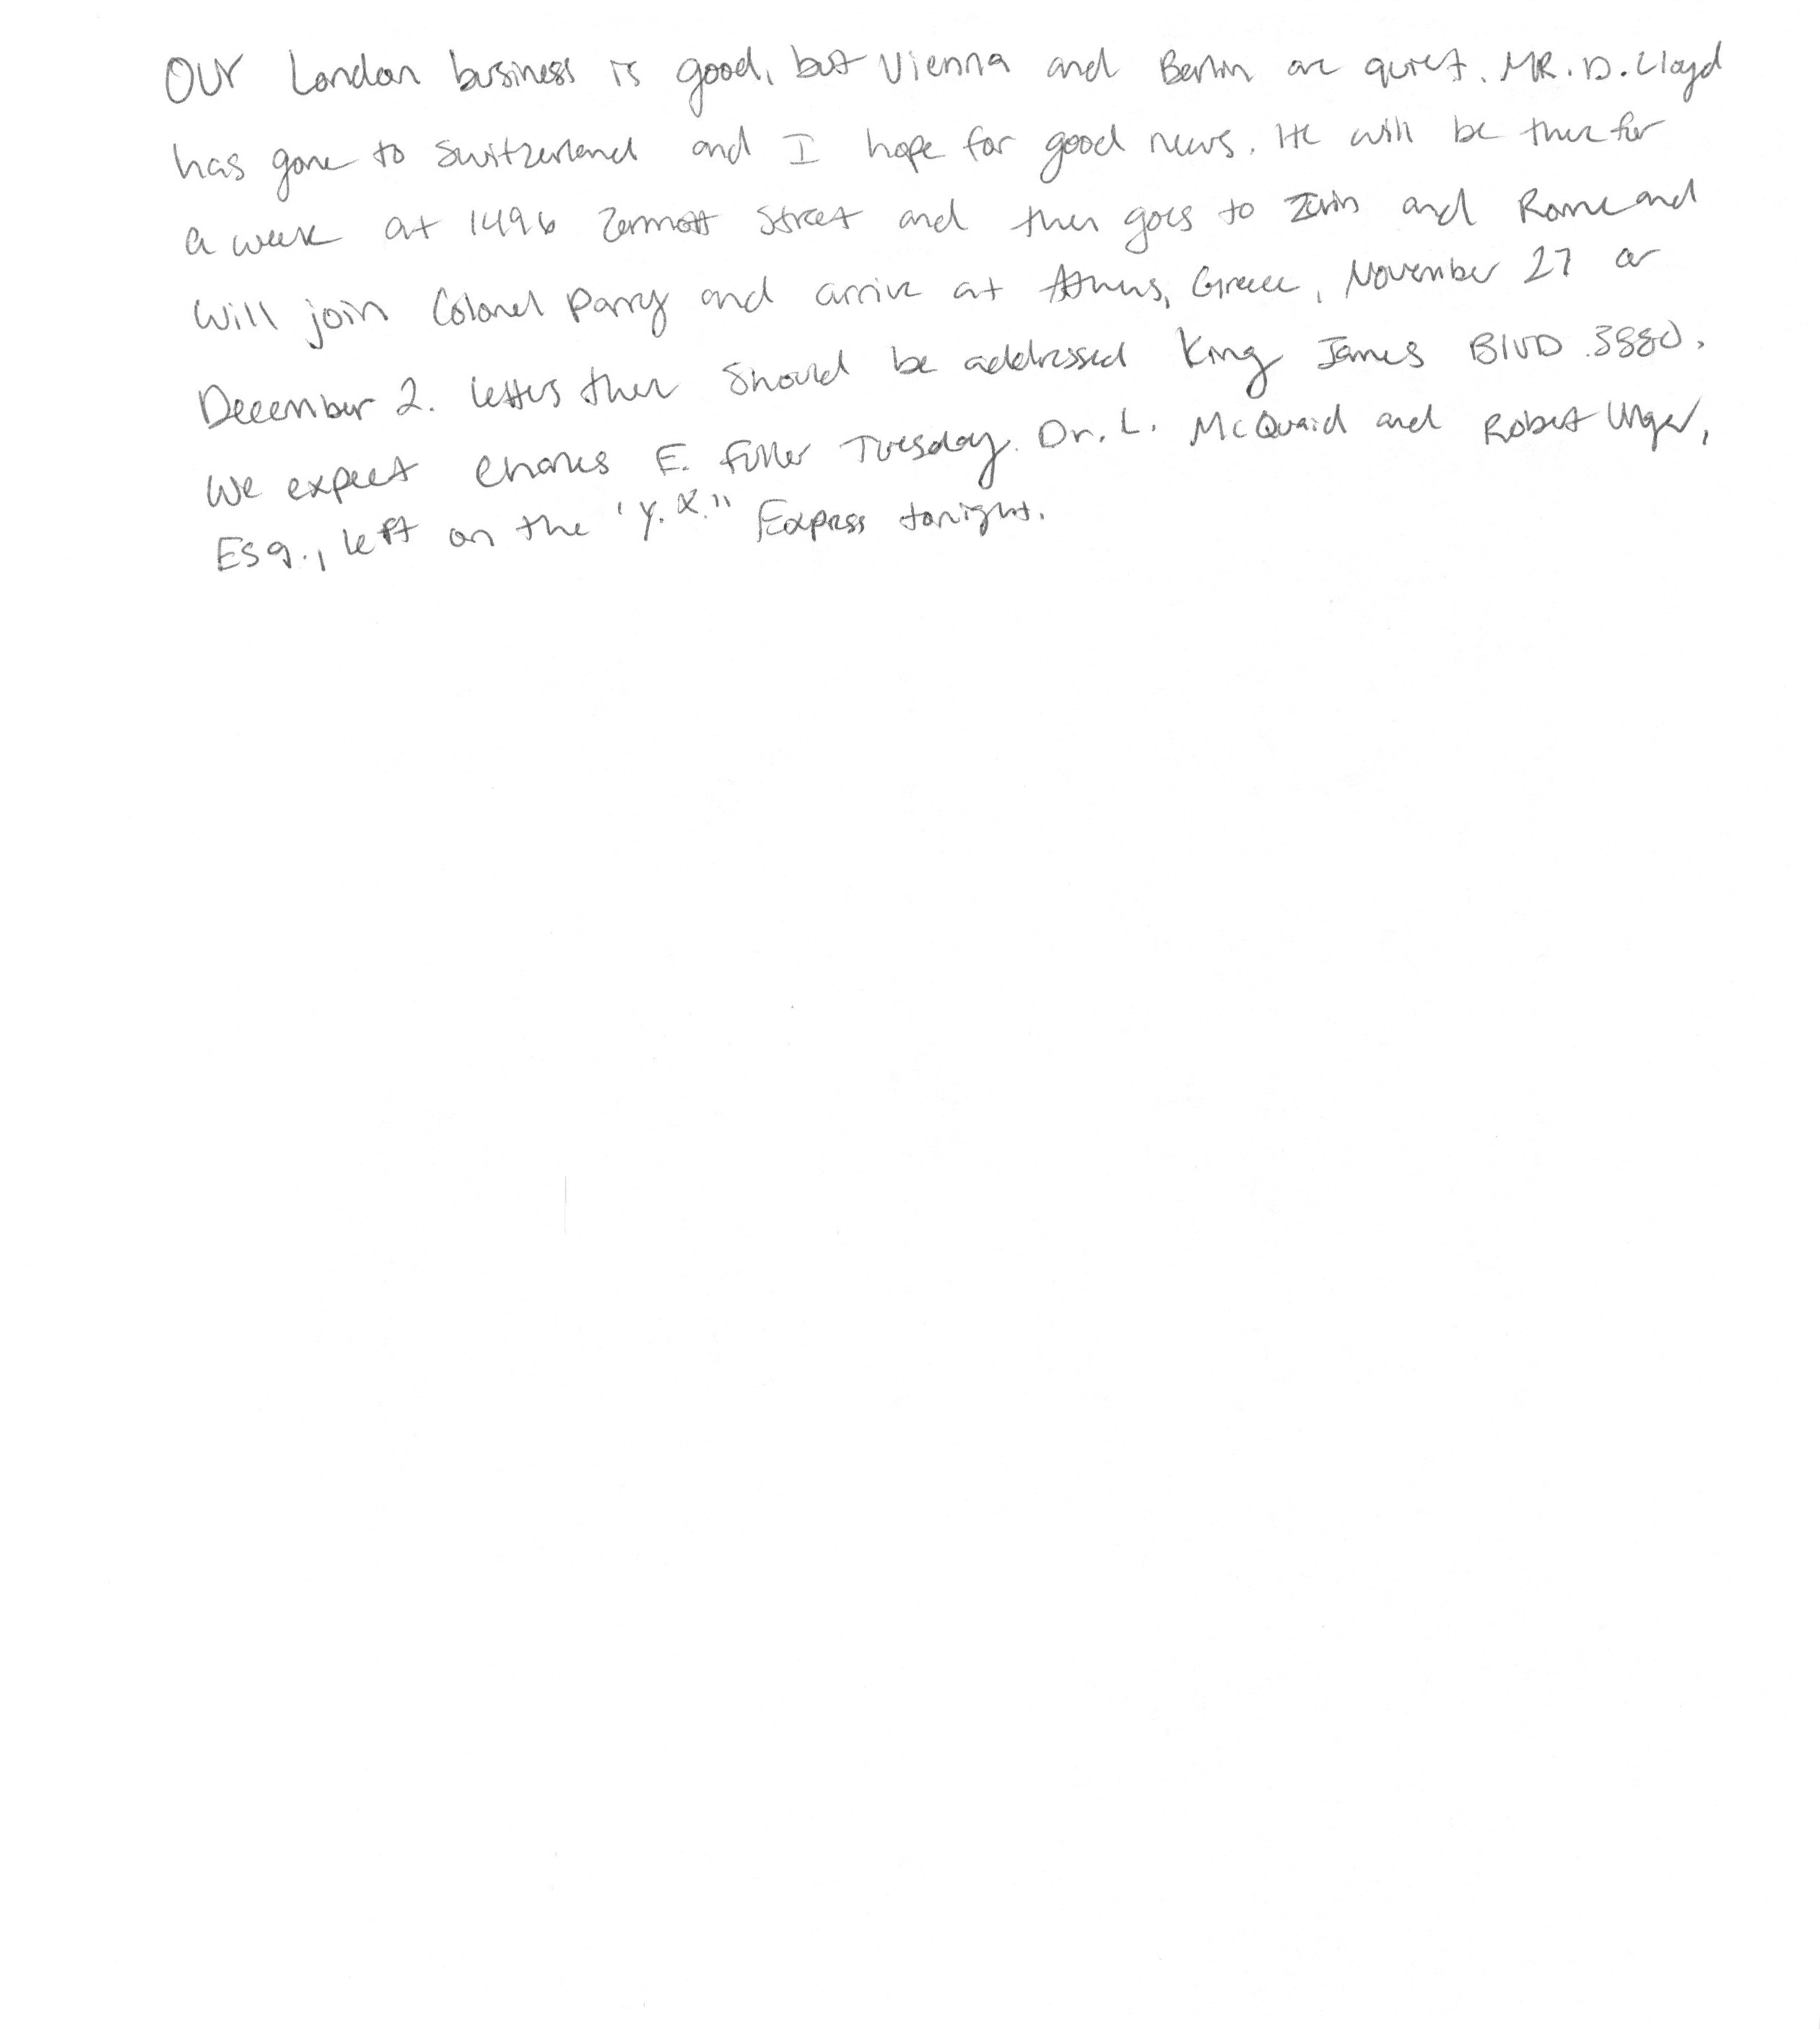 Our London business is good, but Vienna and Berlin are quiet. MR. D. Lloyd
has gone to Switzerland and I hope for good news. He will be there for
a week at 1496 Zermott Street and then goes to and Rome and
will join Colonel Parry and arrive at Athens, Greece, November 27 or
December 2. Letters there should be addressed King James BLVD 3880.
We expect Charles E. Fuller Tuesday. Dr. L. McQuaid and Robert Unger,
Esq., left on the "Y.X." Express tonight.